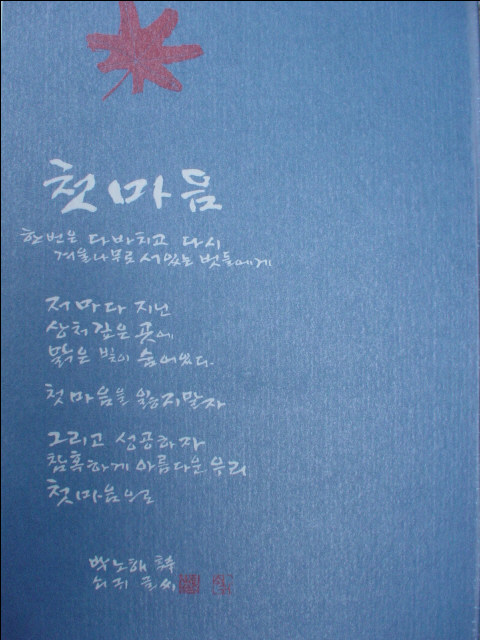 첫마음
한번은 다바치고 다시
겨울나무로 서있는 벗들에게
저마다 지닌
상처 깊은 곳에
맑은 빛이 숨어있다.
첫마음을 잃지말자
그리고 성공하자
참혹하게 아름다운 우리
첫마음으로
박노해
쇠귀 글씨